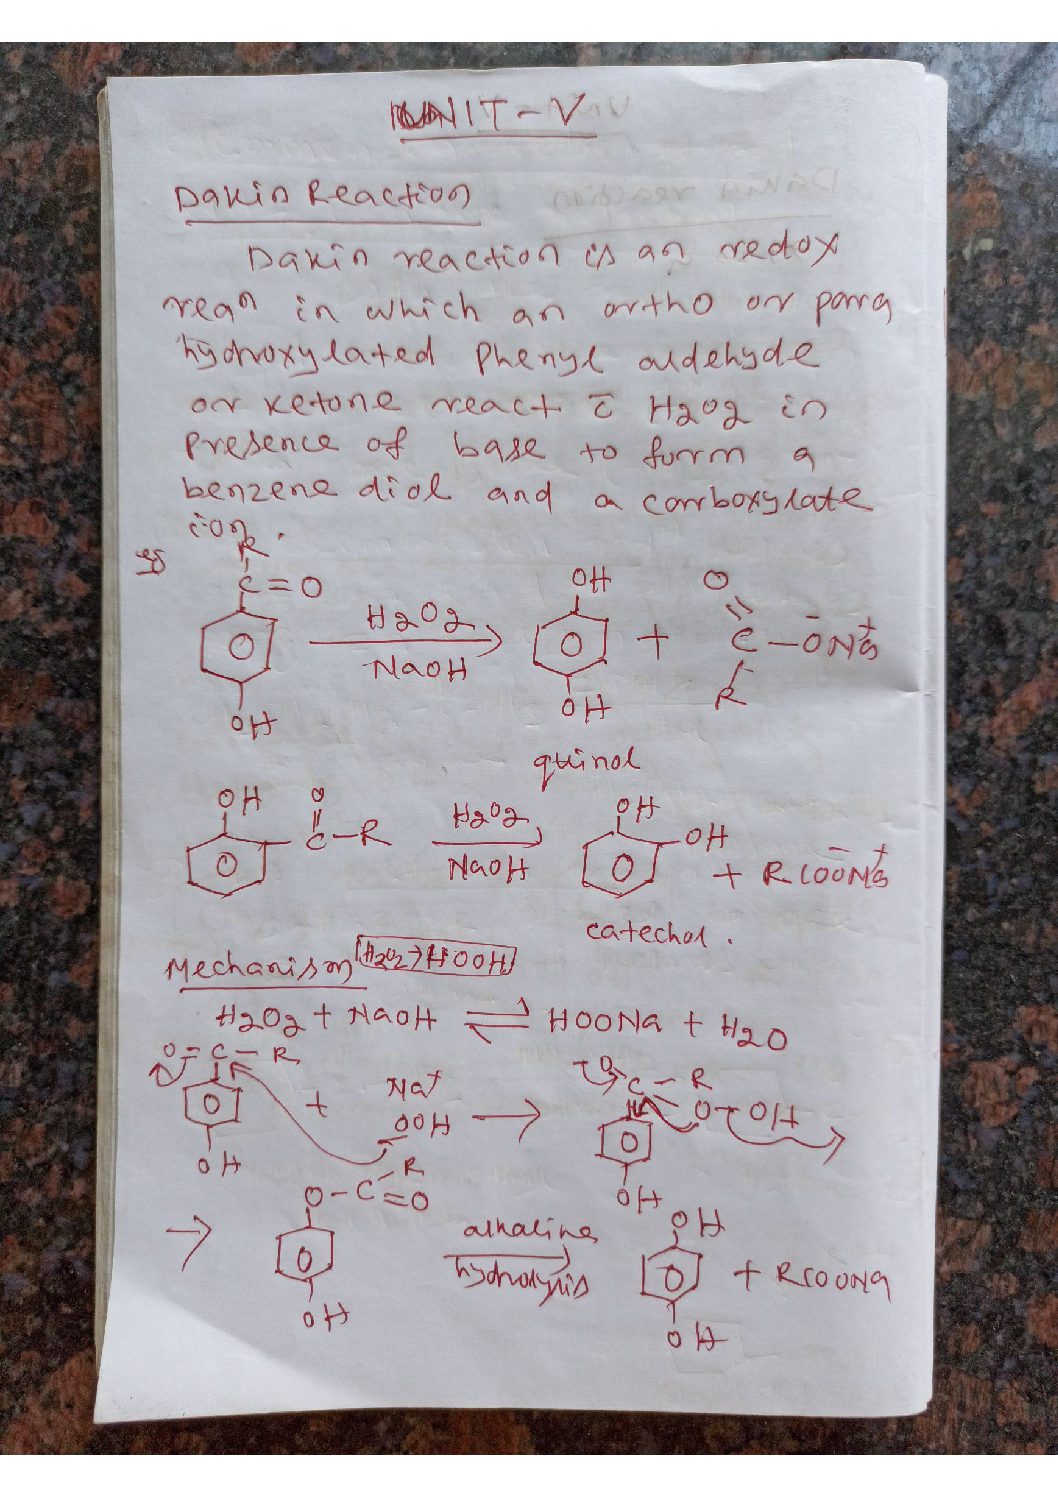 UNIT - V
Dakin Reaction
Dakin reaction is an redox
reaⁿ in which an ortho or para
hydroxylated phenyl aldehyde
or ketone react c̄ H2O2 in
presence of base to form a
benzene diol and a carboxylate
ion.
eg
R
C=O
OH
H2O2
NaOH
OH
OH
+
O
C-O⁻Na⁺
R
quinol
OH
O
C-R
H2O2
NaOH
OH
OH
+ RCOO⁻Na⁺
catechol.
Mechanism [H2O2→HOOH]
H2O2 + NaOH ⇌ HOONa + H2O
O=C-R
OH
+
Na⁺
OOH
→
O
C-R
O-OH
OH
→
O-C=O
R
OH
alkaline
hydrolysis
OH
OH
+ RCOONa